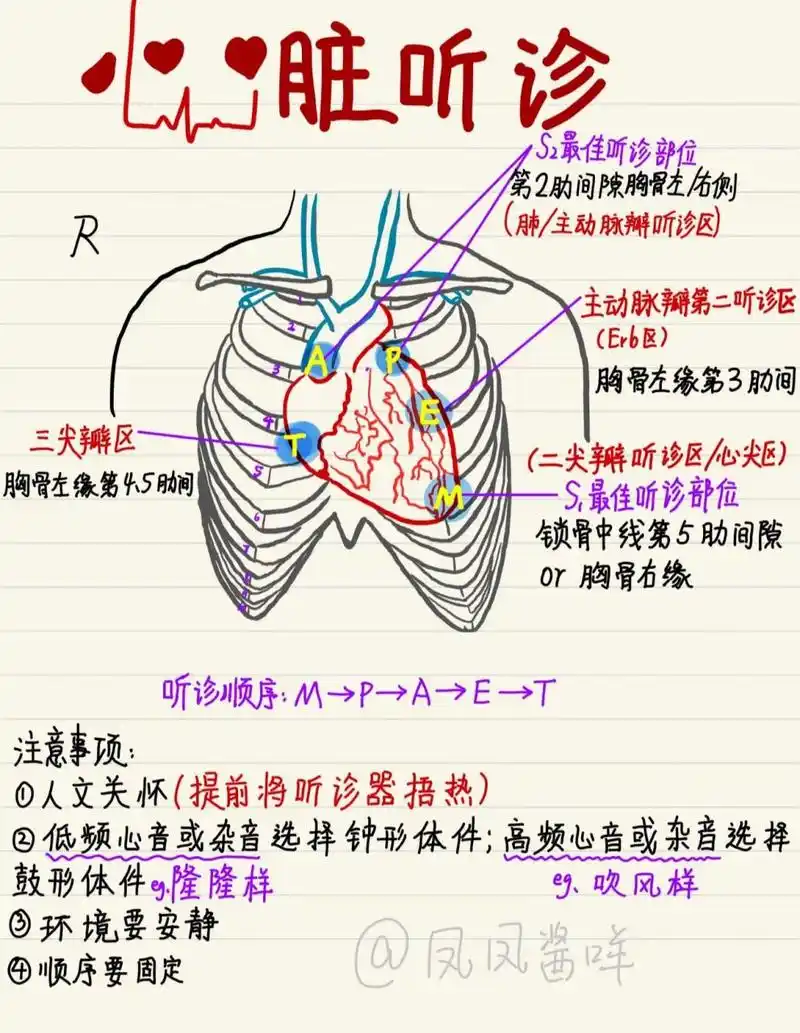 心脏听诊
S₂最佳听诊部位
第2肋间隙胸骨左/右侧
(肺/主动脉瓣听诊区)
R
主动脉瓣第二听诊区
(Erb区)
胸骨左缘第3肋间
1
2
3
4
5
6
7
A
P
E
T
M
三尖瓣区
胸骨左缘第4.5肋间
(二尖瓣听诊区/心尖区)
S₁最佳听诊部位
锁骨中线第5肋间隙
or 胸骨右缘
听诊顺序:M→P→A→E→T
注意事项:
①人文关怀(提前将听诊器捂热)
②低频心音或杂音选择钟形体件;高频心音或杂音选择
鼓形体件 eg.隆隆样 eg、吹风样
③环境要安静
④顺序要固定
@凤凤酱咩